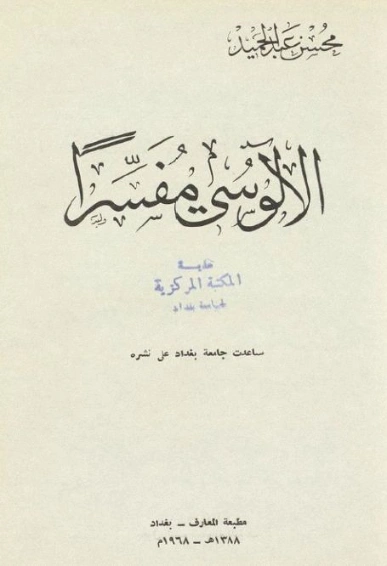 محسن عبد الحميد
الآلوسي مفسرًا
هدية
المكتبة المركزية
لجامعة بغداد
ساعدت جامعة بغداد على نشره
مطبعة المعارف – بغداد
١٣٨٨هـ – ١٩٦٨م